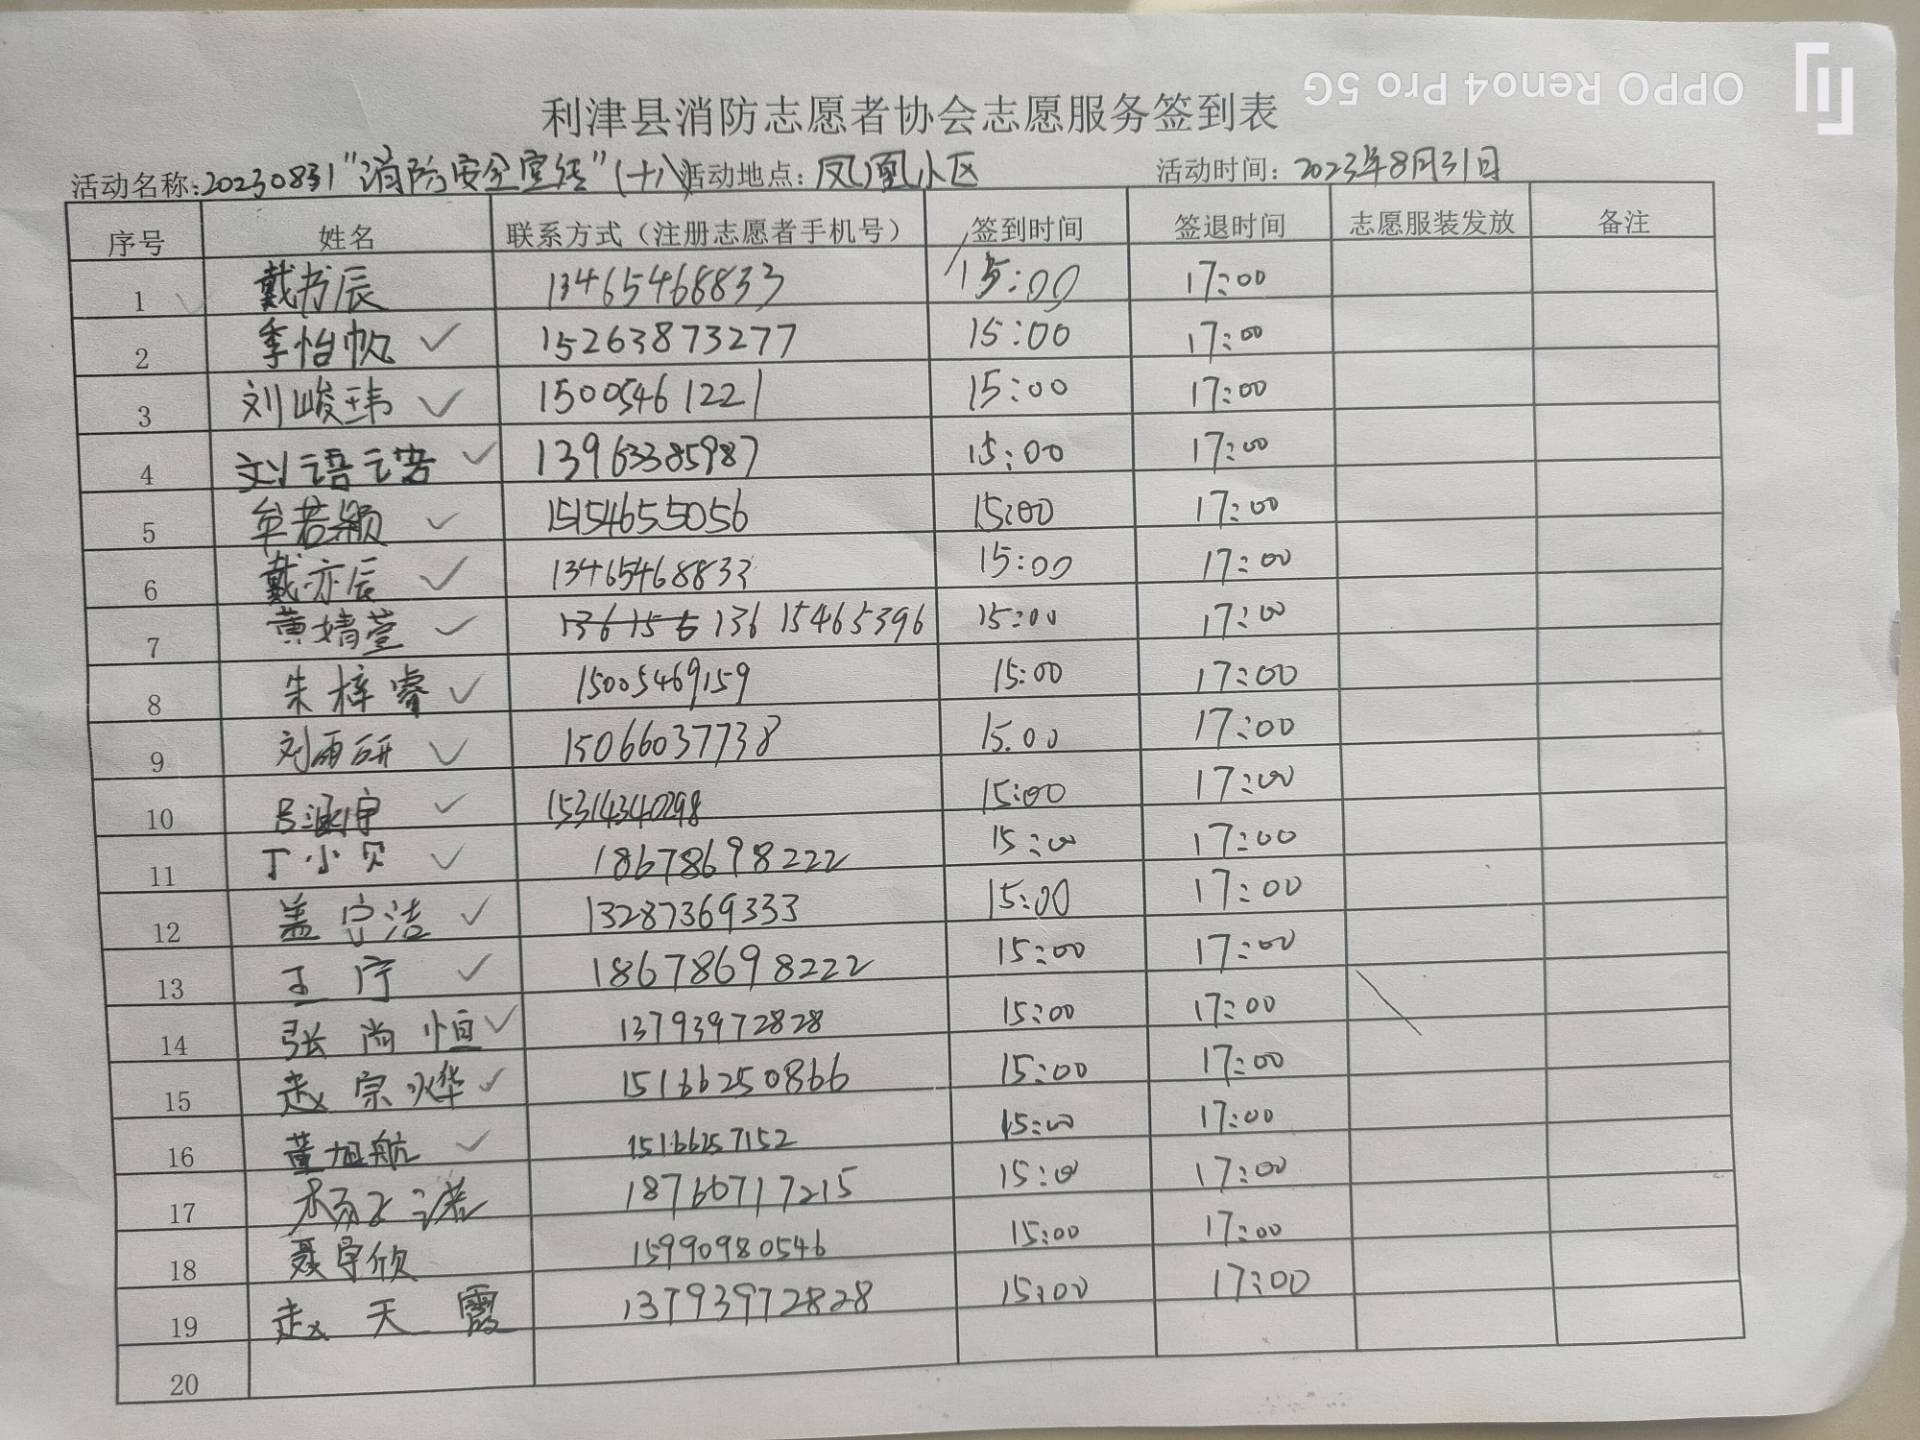 OPPO Reno4 Pro 5G
利津县消防志愿者协会志愿服务签到表
活动名称:20230831"消防安全宣传"(十八) 活动地点: 凤凰小区 活动时间: 2023年8月31日
序号 姓名 联系方式（注册志愿者手机号） 签到时间 签退时间 志愿服装发放 备注
1 戴书辰 13465468833 15:00 17:00
2 季怡帆 ✓ 15263873277 15:00 17:00
3 刘峻玮 ✓ 15005461221 15:00 17:00
4 刘语诺 ✓ 13963385987 15:00 17:00
5 牟若颖 ✓ 15154655056 15:00 17:00
6 戴亦辰 ✓ 13465468833 15:00 17:00
7 黄婧萱 ✓ 13615465396 15:00 17:00
8 朱梓睿 ✓ 15005469159 15:00 17:00
9 刘雨研 ✓ 15066037738 15.00 17:00
10 吕涵宇 ✓ 15314340298 15:00 17:00
11 丁小贝 ✓ 18678698222 15:00 17:00
12 盖宁洁 ✓ 13287369333 15:00 17:00
13 王宁 ✓ 18678698222 15:00 17:00
14 张尚恒 ✓ 13793972828 15:00 17:00
15 赵宗烨 ✓ 15166250866 15:00 17:00
16 董旭航 ✓ 15166257152 15:00 17:00
17 杨文诺 18766717215 15:00 17:00
18 聂宇欣 15990980546 15:00 17:00
19 赵天霞 13793972828 15:00 17:00
20